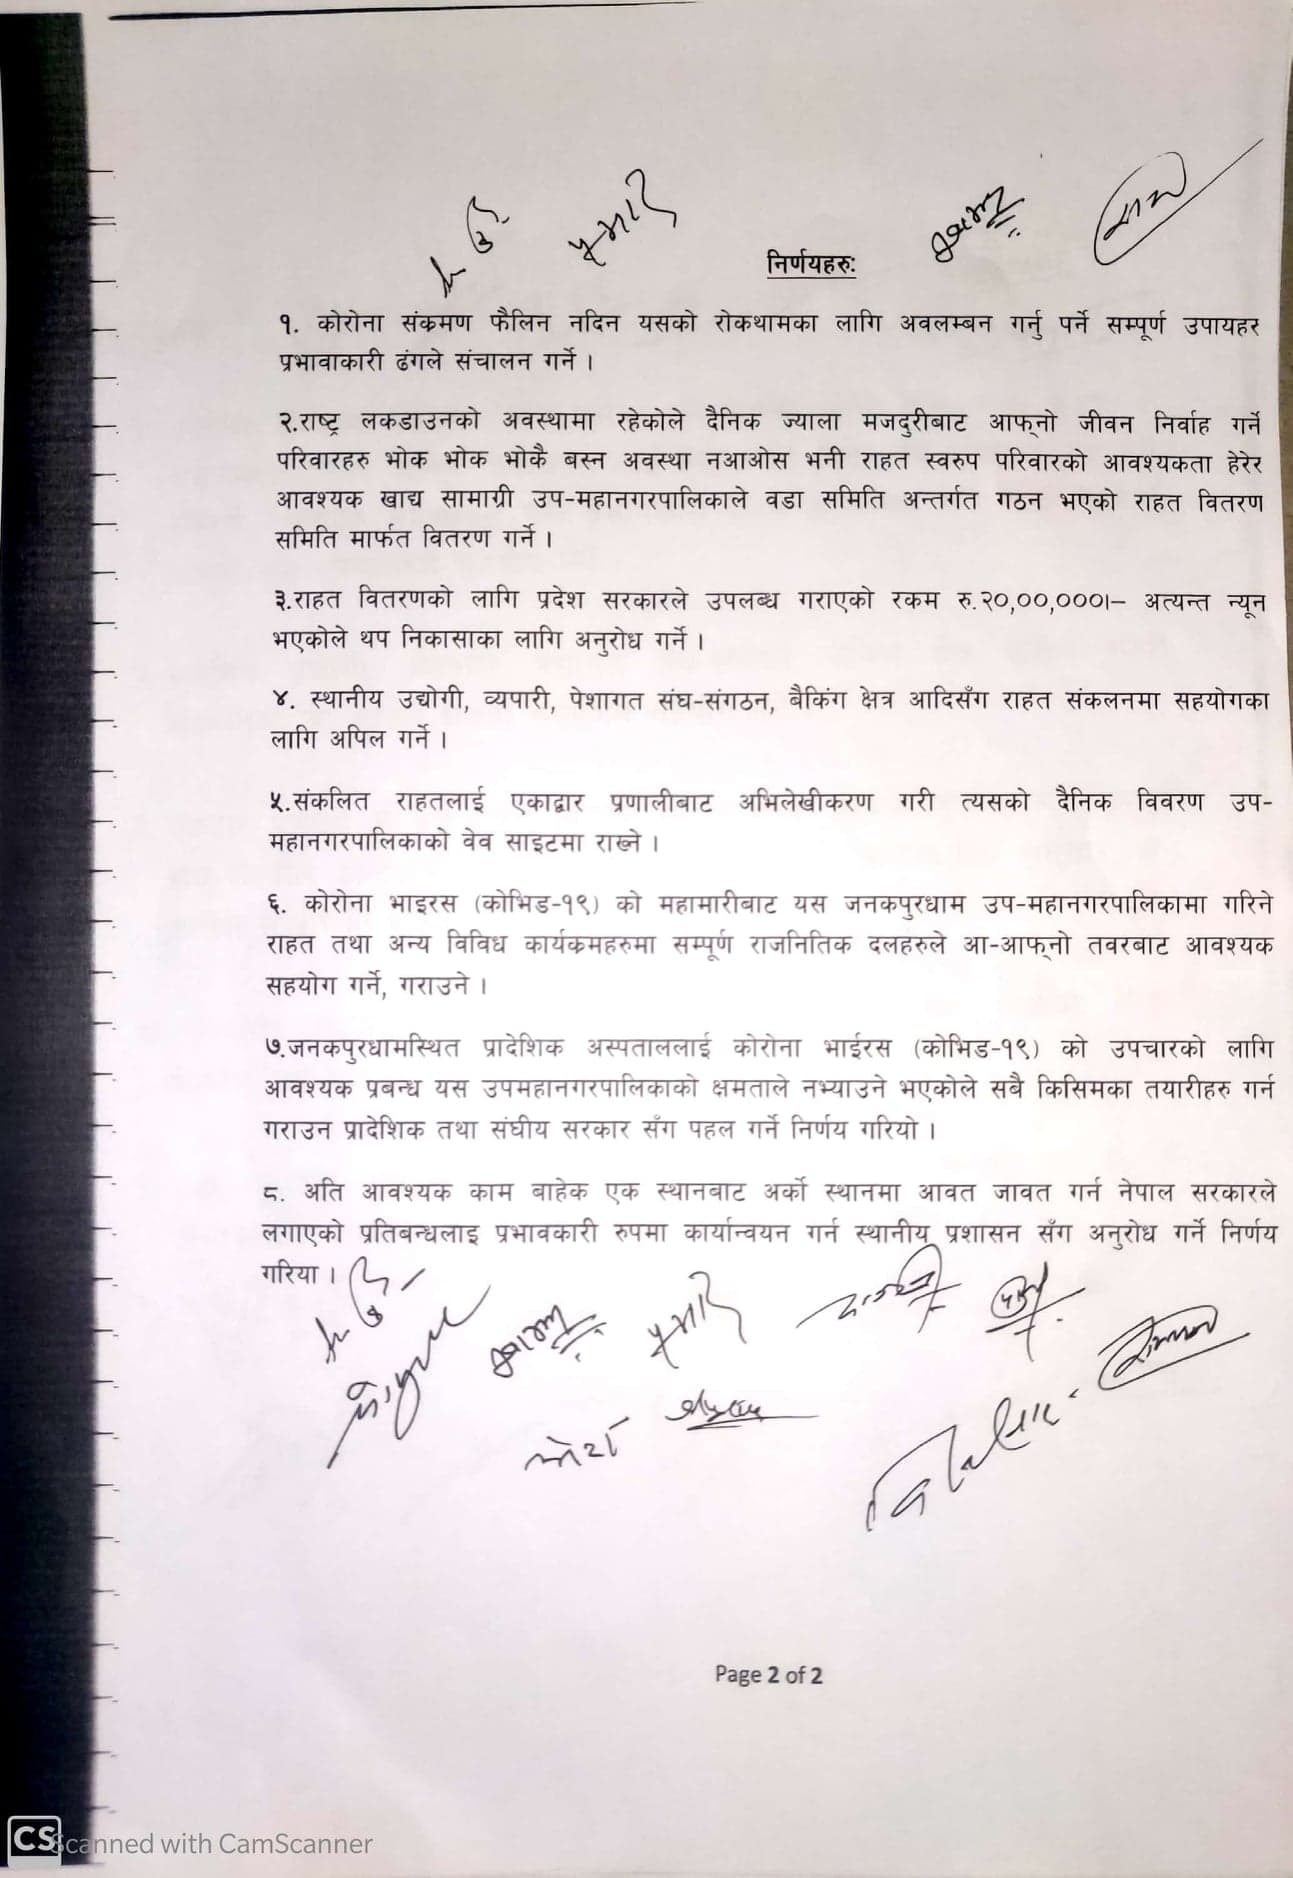 निर्णयहरु:
१. कोरोना संक्रमण फैलिन नदिन यसको रोकथामका लागि अवलम्बन गर्नु पर्ने सम्पूर्ण उपायहर
प्रभावाकारी ढंगले संचालन गर्ने ।
२.राष्ट्र लकडाउनको अवस्थामा रहेकोले दैनिक ज्याला मजदुरीबाट आफ्नो जीवन निर्वाह गर्ने
परिवारहरु भोक भोक भोकै बस्न अवस्था नआओस भनी राहत स्वरुप परिवारको आवश्यकता हेरेर
आवश्यक खाद्य सामाग्री उप-महानगरपालिकाले वडा समिति अन्तर्गत गठन भएको राहत वितरण
समिति मार्फत वितरण गर्ने ।
३.राहत वितरणको लागि प्रदेश सरकारले उपलब्ध गराएको रकम रु.२०,००,०००।– अत्यन्त न्यून
भएकोले थप निकासाका लागि अनुरोध गर्ने ।
४. स्थानीय उद्योगी, व्यपारी, पेशागत संघ-संगठन, बैकिंग क्षेत्र आदिसँग राहत संकलनमा सहयोगका
लागि अपिल गर्ने ।
५.संकलित राहतलाई एकाद्वार प्रणालीबाट अभिलेखीकरण गरी त्यसको दैनिक विवरण उप-
महानगरपालिकाको वेव साइटमा राख्ने ।
६. कोरोना भाइरस (कोभिड-१९) को महामारीबाट यस जनकपुरधाम उप-महानगरपालिकामा गरिने
राहत तथा अन्य विविध कार्यक्रमहरुमा सम्पूर्ण राजनितिक दलहरुले आ-आफ्नो तवरबाट आवश्यक
सहयोग गर्ने, गराउने ।
७.जनकपुरधामस्थित प्रादेशिक अस्पताललाई कोरोना भाईरस (कोभिड-१९) को उपचारको लागि
आवश्यक प्रबन्ध यस उपमहानगरपालिकाको क्षमताले नभ्याउने भएकोले सबै किसिमका तयारीहरु गर्न
गराउन प्रादेशिक तथा संघीय सरकार सँग पहल गर्ने निर्णय गरियो ।
८. अति आवश्यक काम बाहेक एक स्थानबाट अर्को स्थानमा आवत जावत गर्न नेपाल सरकारले
लगाएको प्रतिबन्धलाइ प्रभावकारी रुपमा कार्यान्वयन गर्न स्थानीय प्रशासन सँग अनुरोध गर्ने निर्णय
गरिया ।
Page 2 of 2
CS Scanned with CamScanner